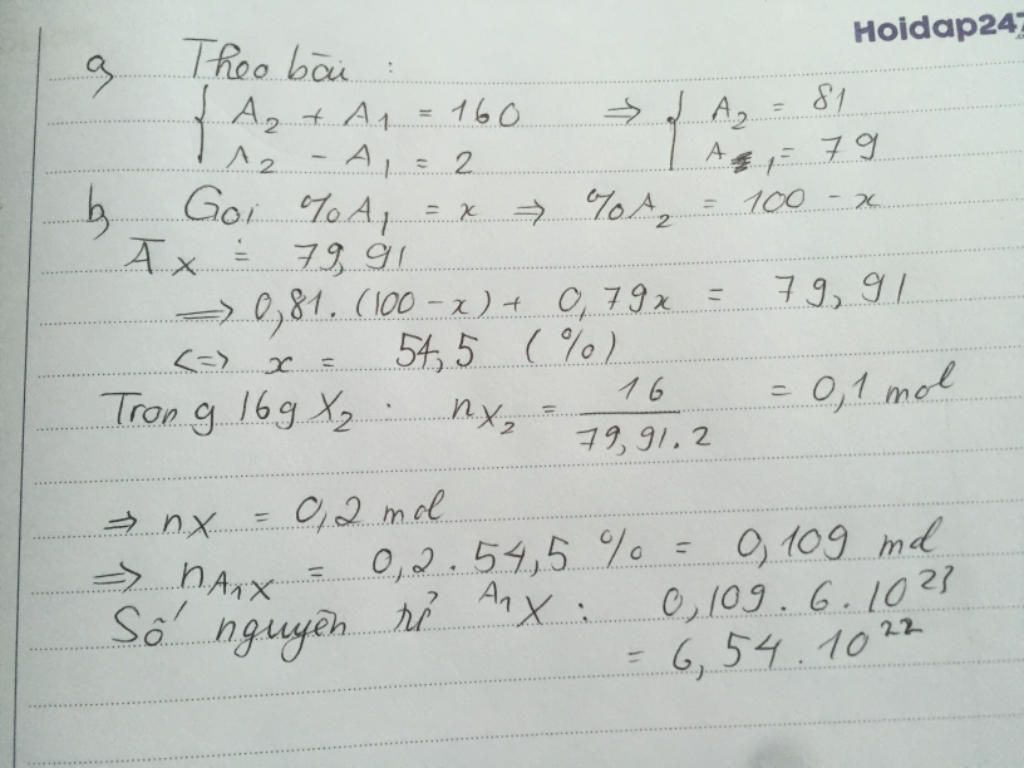 Hoidap247
a, Theo bài :
{ A₂ + A₁ = 160 ⇒ { A₂ = 81
A₂ - A₁ = 2 A₁ = 79
b, Goi %A₁ = x ⇒ %A₂ = 100 - x
A̅x = 79,91
⇒ 0,81. (100 - x) + 0,79x = 79,91
<=> x = 54,5 (%)
Trong 16g X₂ : nX₂ = 16 / 79,91.2 = 0,1 mol
⇒ nX = 0,2 mol
⇒ nA₁X = 0,2. 54,5 % = 0,109 mol
Số nguyên tử ᴬ¹X : 0,109. 6. 10²³
= 6,54. 10²²